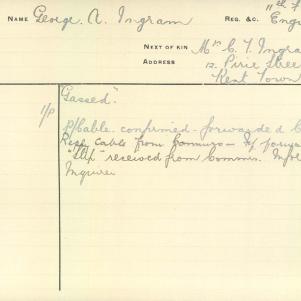 11th F
NAME George A. Ingram REG. &C. Eng
NEXT OF KIN Mr C. T. Ingra
ADDRESS 12. Pirie Stree
Kent Town
"Gassed".
1/P
P/Cable. confirmed - forwarded C
Reply Cable from Commrs -
"Slip" received from Commrs.
Inquirer